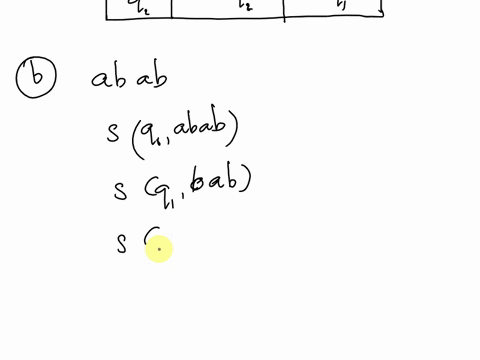 q₂ q₂ q₁
b abab
s (q₀, abab)
s (q₁, bab)
s (